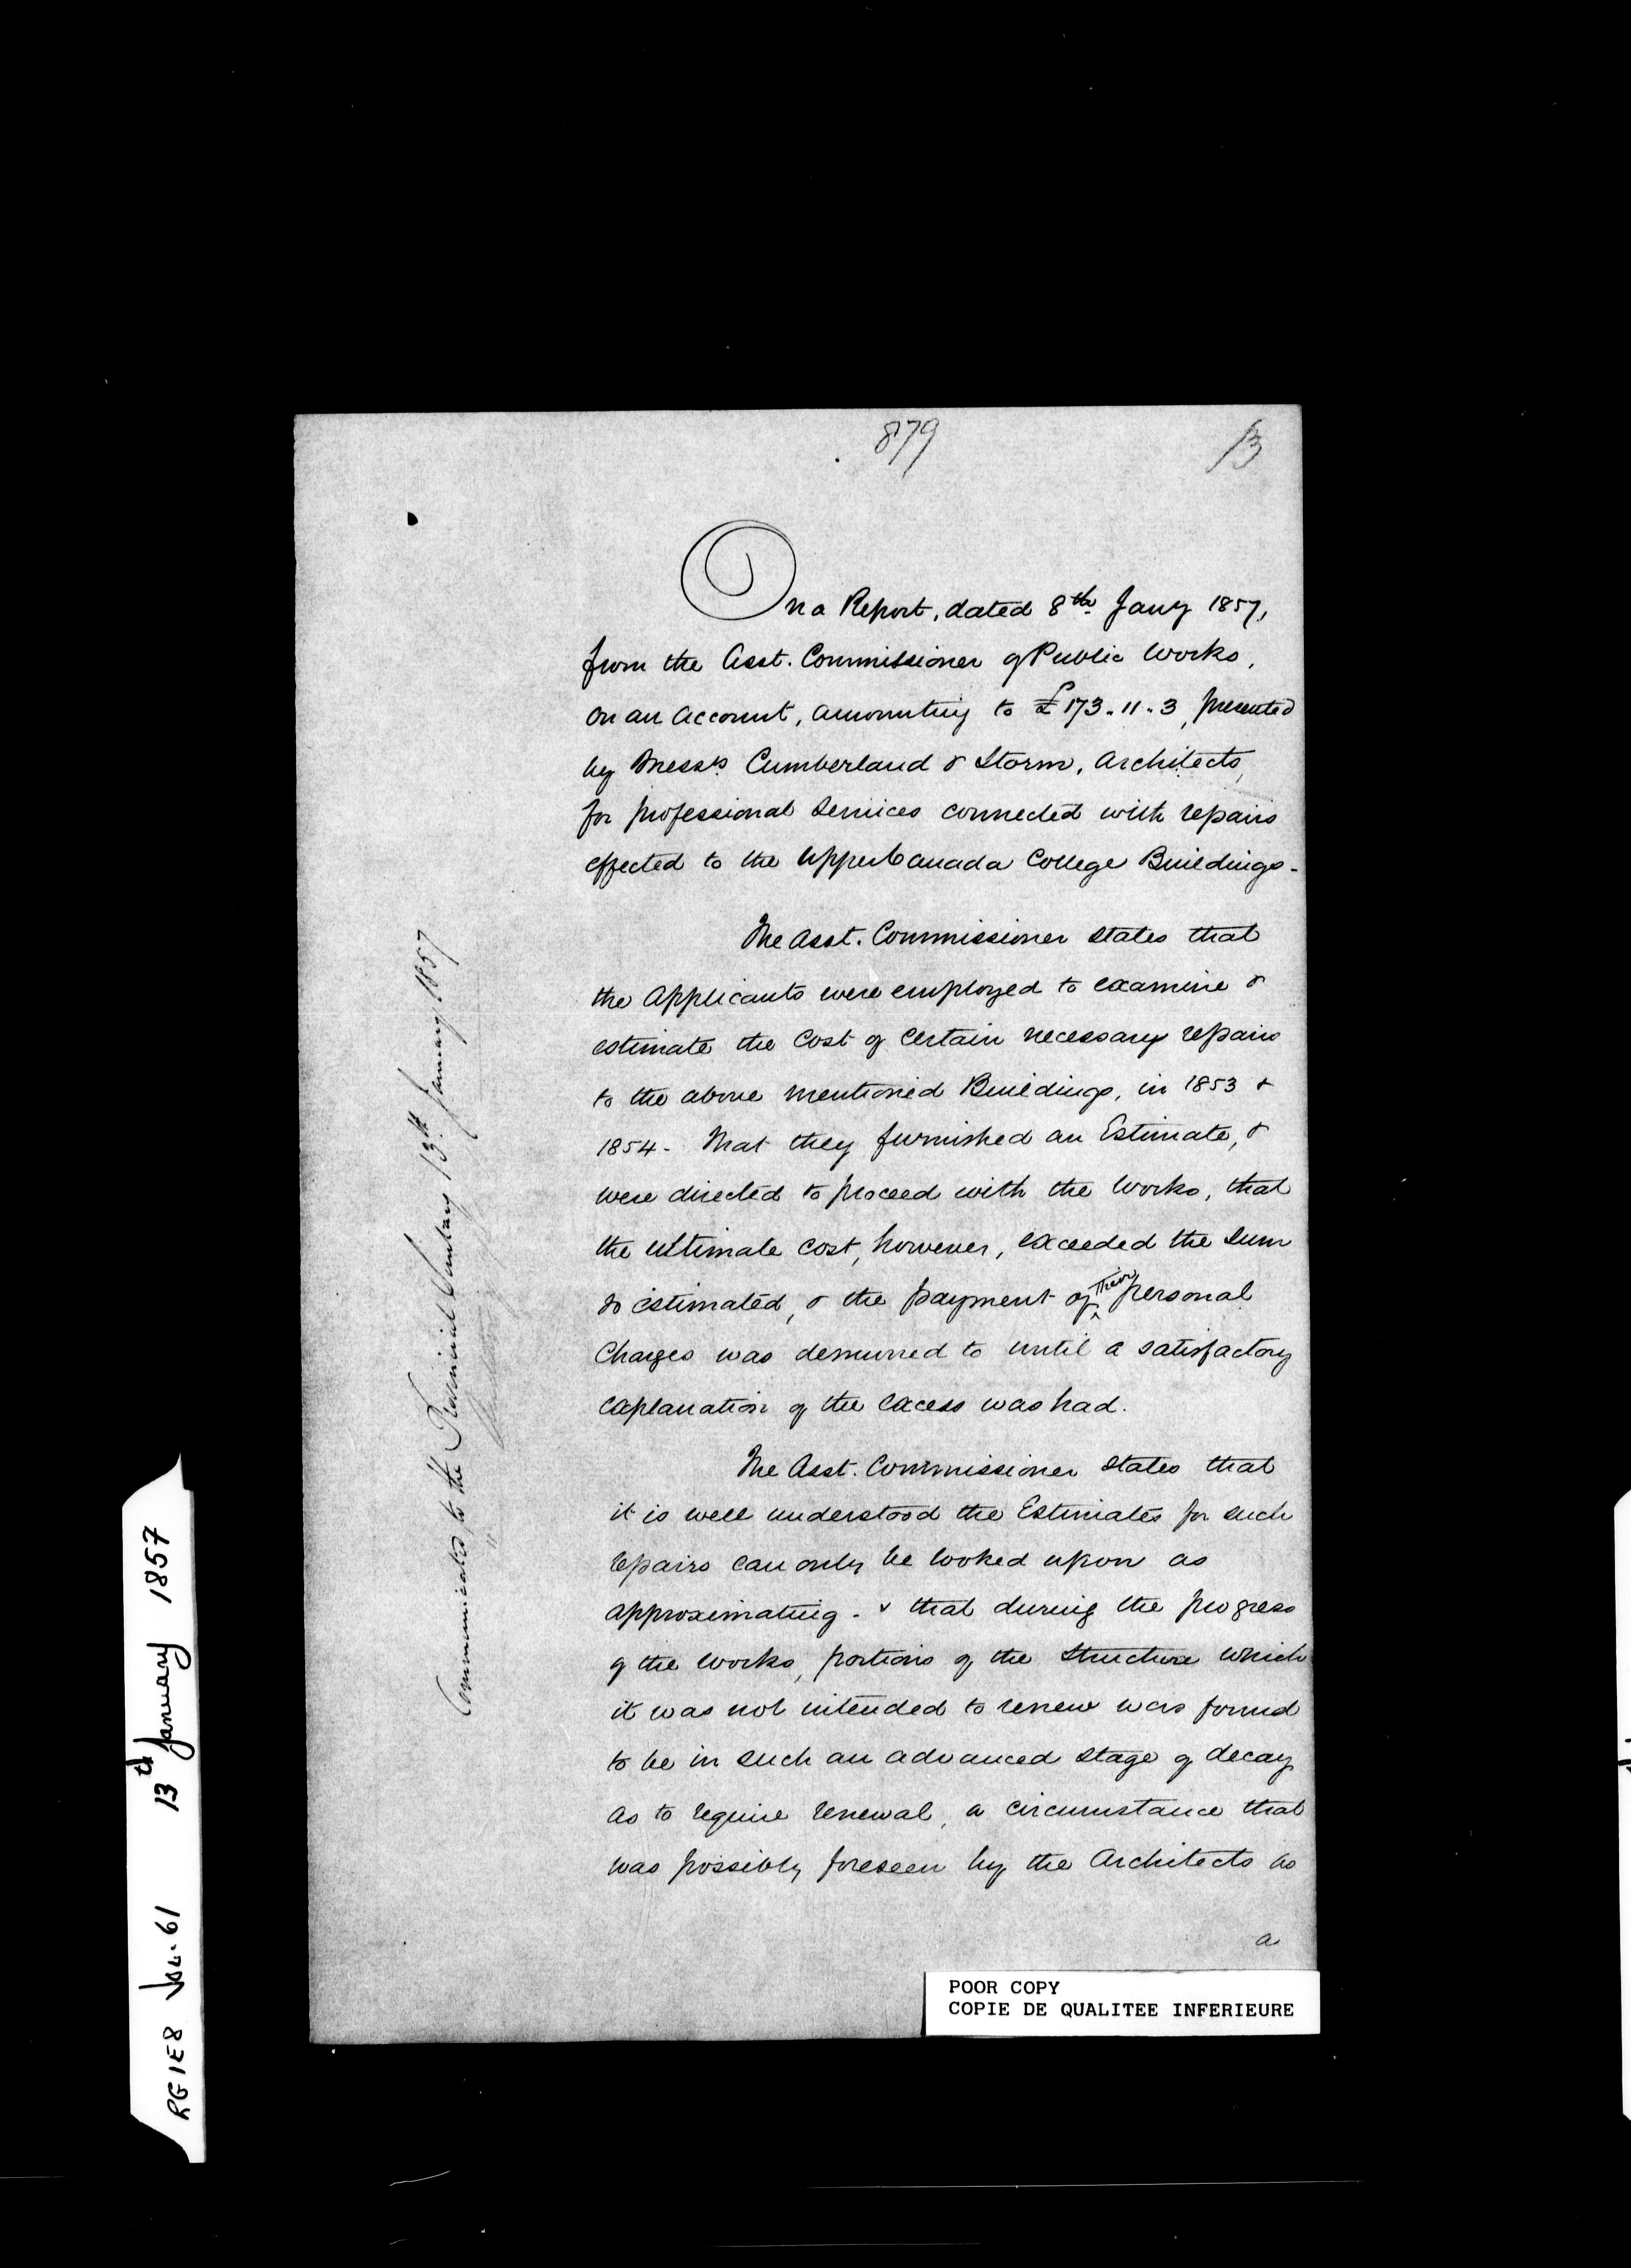 879
13
On a Report, dated 8th Jany 1857,
from the Asst. Commissioner of Public Works,
on an Account, amounting to £173.11.3, presented
by Messrs Cumberland & Storm, Architects,
for professional services connected with repairs
effected to the Upper Canada College Buildings-
The Asst. Commissioner states that
the Applicants were employed to examine &
estimate the cost of certain necessary repairs
to the above mentioned Buildings, in 1853 &
1854- That they furnished an Estimate, &
were directed to proceed with the works, that
the ultimate cost, however, exceeded the sum
so estimated, & the payment of their personal
charges was demurred to until a satisfactory
explanation of the excess was had.
The Asst. Commissioner states that
it is well understood the Estimates for such
repairs can only be looked upon as
approximating- & that during the progress
of the works, portions of the structure which
it was not intended to renew was found
to be in such an advanced stage of decay
as to require renewal, a circumstance that
was possibly foreseen by the Architects as
a
Communicated to the Provincial Secretary 13th January 1857
RG1E8 Vol. 61 13th January 1857
POOR COPY
COPIE DE QUALITEE INFERIEURE